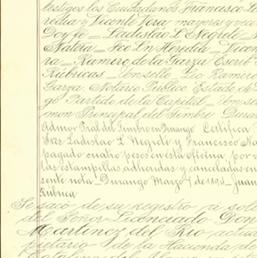 testigos los Ciudadanos Francisco L
redia y Vicente Vera, mayores y vec
Doy fe — Ladislao L Negrete — N
Natera — Fco Ln Heredia — Vicen
ra — Ramiro de la Garza Escrib
Rúbricas — Un sello — Lic Ramiro
Garza Notario Público Estado de
go Partido de la Capital — Un
mon Principal del Timbre Duran
Admor Pral del Timbre en Durango Certifica
Ladislao L Negrete y Francisco Na
pagado cuatro pesos en esta oficina, por v
las estampillas adheridas y canceladas en
sente nota — Durango Marzo 7 de — Juan
Rúbrica
Se sacó de su registro á soli
del Señor Licenciado Don
Martinez del Rio actua
pietario de la Hacienda de